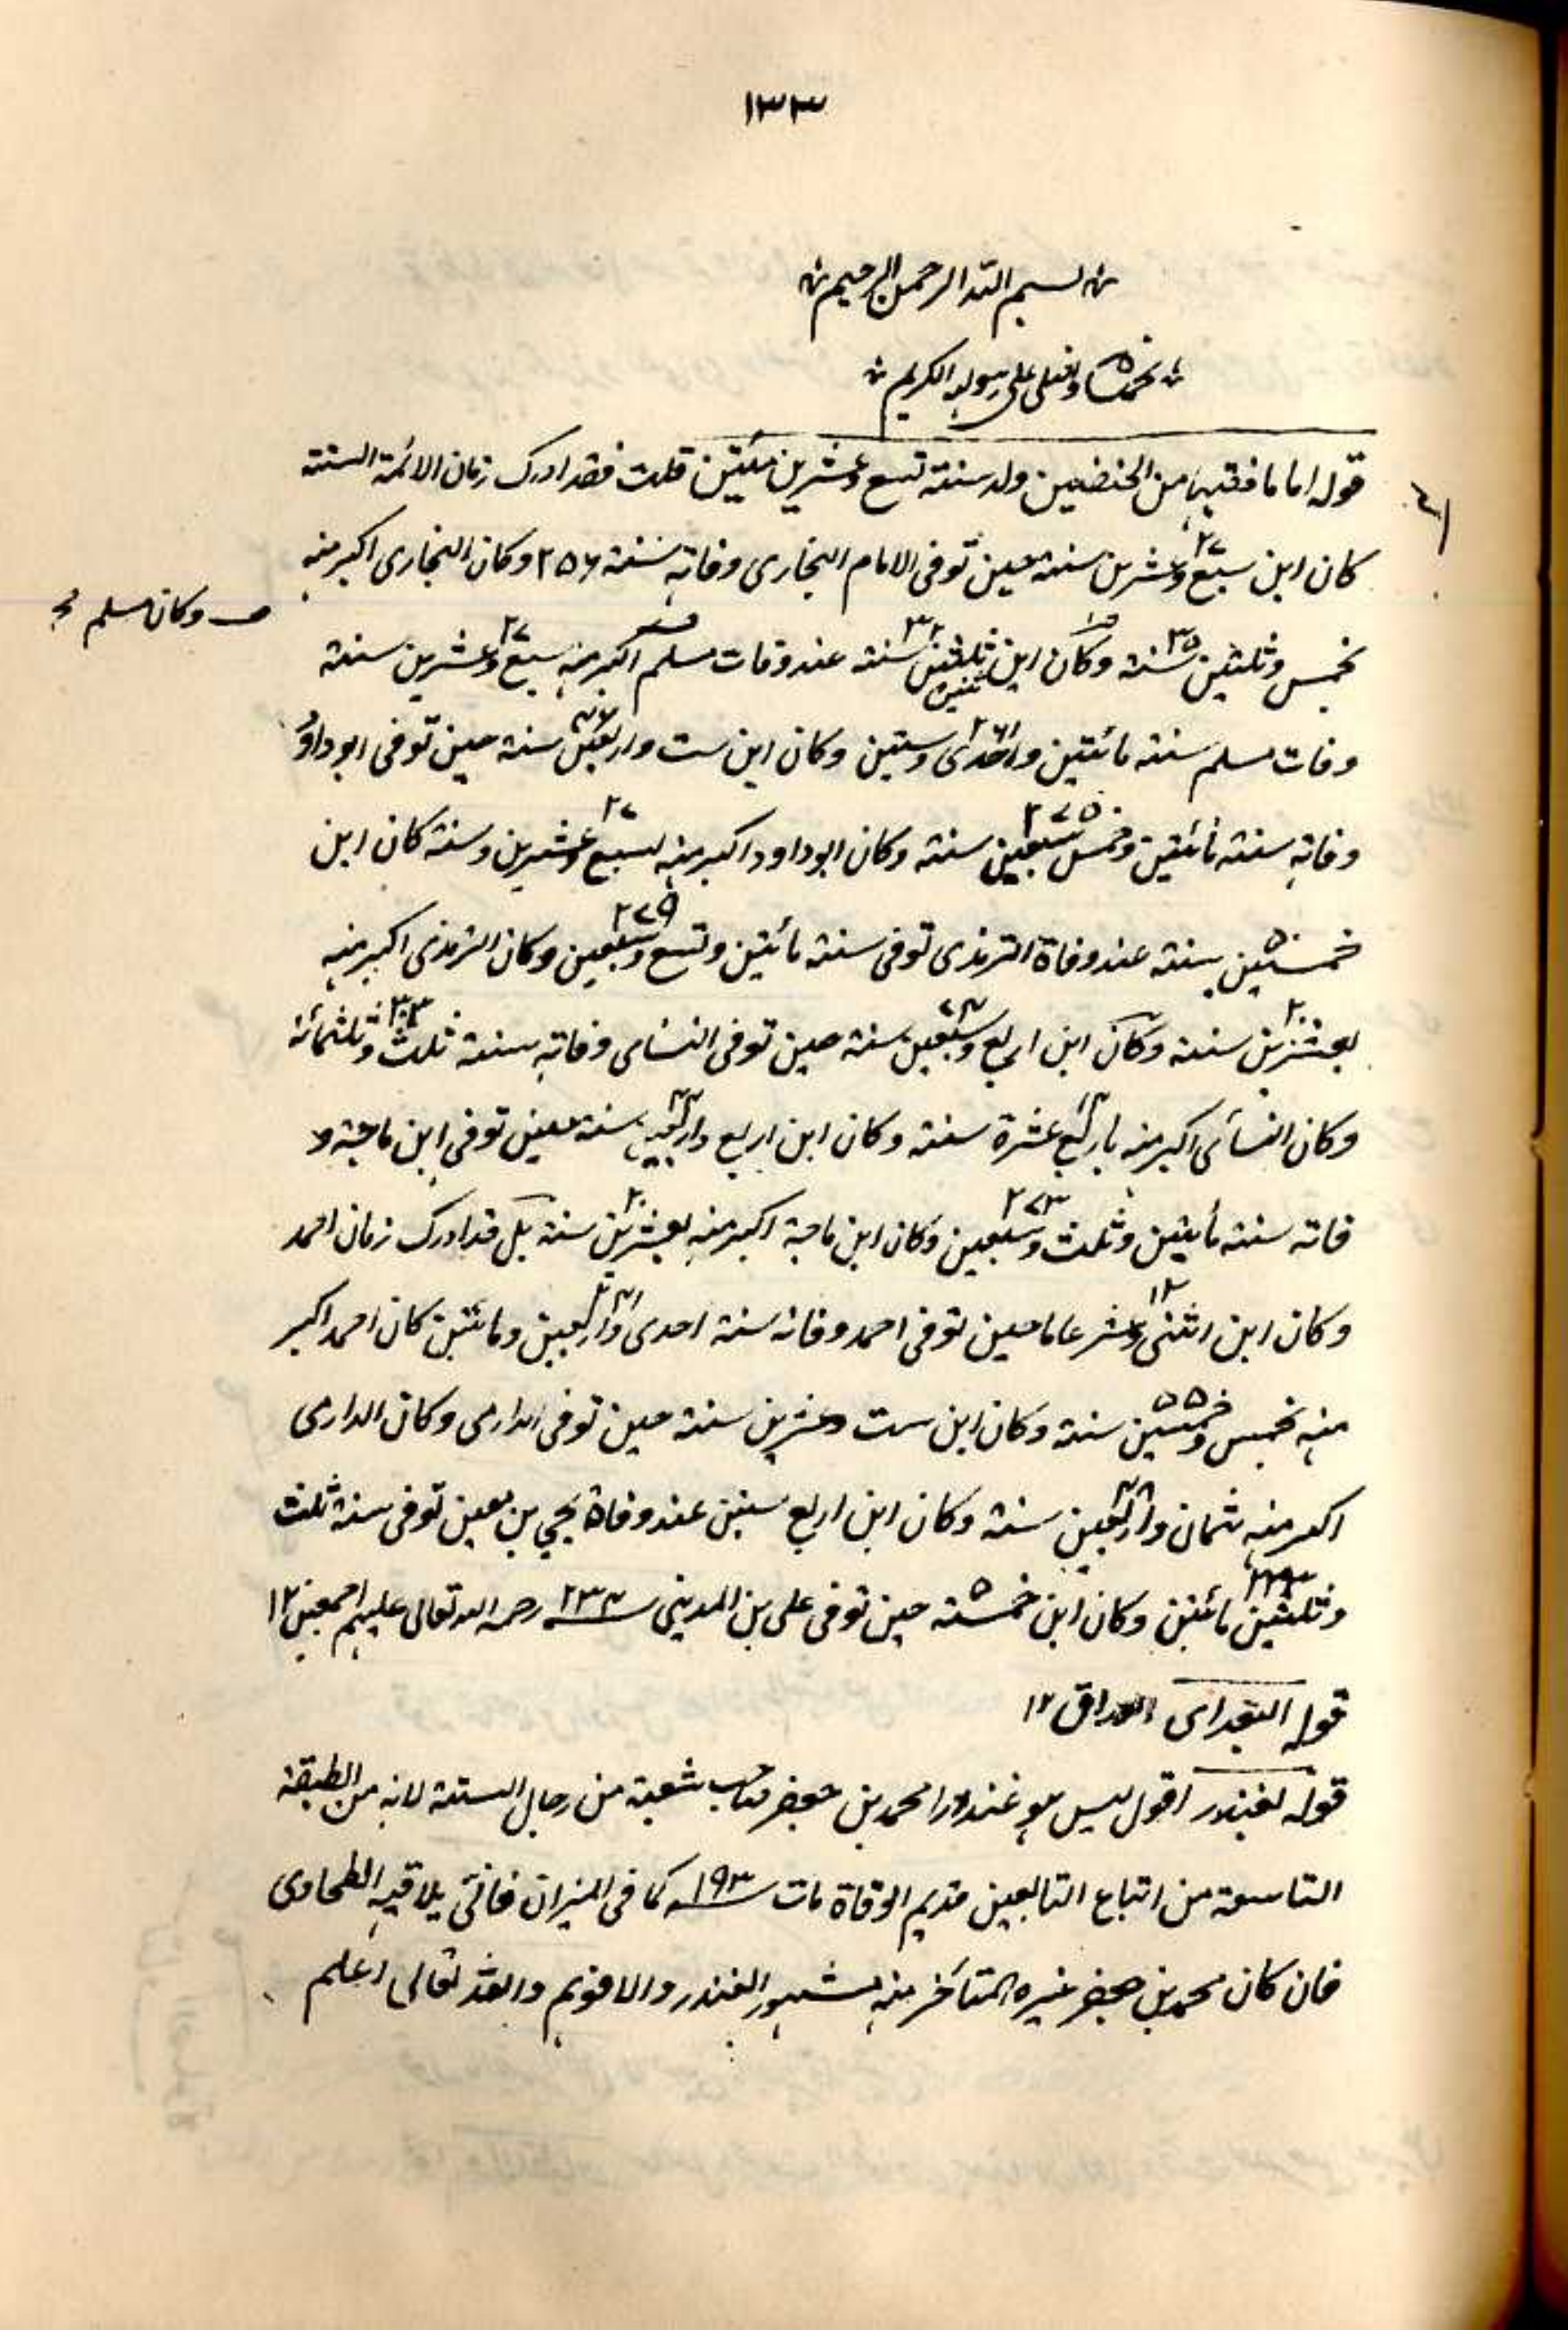 ١٣٣
بسم الله الرحمن الرحيم
نحمده ونصلى على رسوله الكريم
قوله اماما فقيها من الحنفيين ولد سنة تسع وعشرين مئتين قلت فقد ادرك زمان الائمة الستة
كان ابن سبع وعشرين ٢٧ سنة حين توفى الامام البخارى وفاته سنة ٢٥٦ وكان البخارى اكبر منه
بخمس وثلثين ٣٥ سنة وكان ابن ثلثين ٣٢ سنة عند وفات مسلم اكبر منه سبع وعشرين ٢٧ سنة
وكان مسلم
وفات مسلم سنة مائتين واحدى وستين ٢٦١ وكان ابن ست واربعين ٤٦ سنة حين توفى ابو داؤد
وفاته سنة مائتين وخمس سبعين ٢٧٥ سنة وكان ابو داود اكبر منه لسبع وعشرين ٢٧ وسنة كان ابن
خمسين ٥٠ سنة عند وفاة الترمذى توفى سنة مائتين وتسع وسبعين ٢٧٩ وكان الترمذى اكبر منه
بعشرين ٢٠ سنة وكان ابن اربع وسبعين ٧٤ سنة حين توفى النساى وفاته سنة ثلث وثلثمائة ٣٠٣
وكان النسأى اكبر منه باربع عشرة ١٤ سنة وكان ابن اربع واربعين ٤٤ سنة حين توفى ابن ماجة و
فاته سنة مأيتين وثلث وسبعين ٢٧٣ وكان ابن ماجة اكبر منه بعشرين ٢٠ سنة بل قد ادرك زمان احمد
وكان ابن اثنى وعشر ١٢ عاما حين توفى احمد وفاته سنة احدى واربعين ٢٤١ ومائتين كان احمد اكبر
منه بخمس وخمسين ٥٥ سنة وكان ابن ست وعشرين سنة حين توفى الدارمى وكان الدارمى
اكبر منه بثمان واربعين ٤٨ سنة وكان ابن اربع سنين عند وفاة يحيى بن معين توفى سنة ثلث
وثلثين مائتين ٢٣٣ وكان ابن خمس ٥ سنة حين توفى على بن المدينى ٢٣٤ رحمه الله تعالى عليهم اجمعين ١٢
قوله البغدادى العراق ١٢
قوله لغندر اقول ليس هو غندرا محمد بن جعفر صاحب شعبة من رجال الستة لانه من الطبقة
التاسعة من اتباع التابعين قديم الوفاة مات ١٩٣ كما فى الميزان فانى يلاقيه الطحاوى
فان كان محمد بن جعفر غيره المتأخر منه لمشهور الغندر والا فوهم والله تعالى اعلم